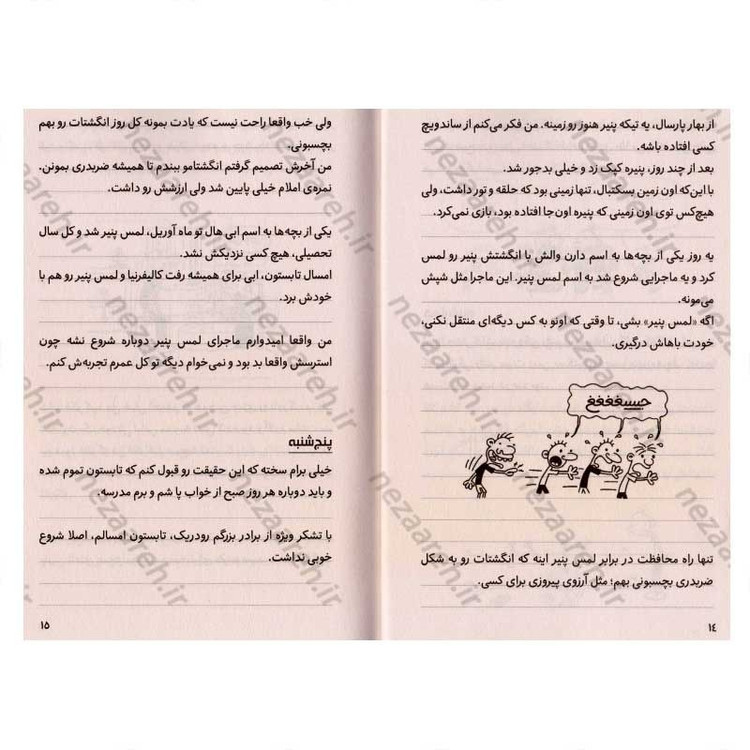 از بهار پارسال، یه تیکه پنیر هنوز رو زمینه. من فکر می‌کنم از ساندویچ
کسی افتاده باشه.
بعد از چند روز، پنیره کپک زد و خیلی بدجور شد.
با این‌که اون زمین بسکتبال، تنها زمینی بود که حلقه و تور داشت، ولی
هیچ‌کس توی اون زمینی که پنیره اون‌جا افتاده بود، بازی نمی‌کرد.
یه روز یکی از بچه‌ها به اسم دارن والش با انگشتش پنیر رو لمس
کرد و یه ماجرایی شروع شد به اسم لمس پنیر. این ماجرا مثل شپش
می‌مونه.
اگه «لمس پنیر» بشی، تا وقتی که اونو به کس دیگه‌ای منتقل نکنی،
خودت باهاش درگیری.
جیییغغغغغ
تنها راه محافظت در برابر لمس پنیر اینه که انگشتات رو به شکل
ضربدری بچسبونی بهم؛ مثل آرزوی پیروزی برای کسی.
١٤
ولی خب واقعا راحت نیست که یادت بمونه کل روز انگشتات رو بهم
بچسبونی.
من آخرش تصمیم گرفتم انگشتامو ببندم تا همیشه ضربدری بمونن.
نمره‌ی املام خیلی پایین شد ولی ارزشش رو داشت.
یکی از بچه‌ها به اسم ابی هال تو ماه آوریل، لمس پنیر شد و کل سال
تحصیلی، هیچ کسی نزدیکش نشد.
امسال تابستون، ابی برای همیشه رفت کالیفرنیا و لمس پنیر رو هم با
خودش برد.
من واقعا امیدوارم ماجرای لمس پنیر دوباره شروع نشه چون
استرسش واقعا بد بود و نمی‌خوام دیگه تو کل عمرم تجربه‌ش کنم.
پنج‌شنبه
خیلی برام سخته که این حقیقت رو قبول کنم که تابستون تموم شده
و باید دوباره هر روز صبح از خواب پا شم و برم مدرسه.
با تشکر ویژه از برادر بزرگم رودریک، تابستون امسالم، اصلا شروع
خوبی نداشت.
١٥
nezaareh.ir